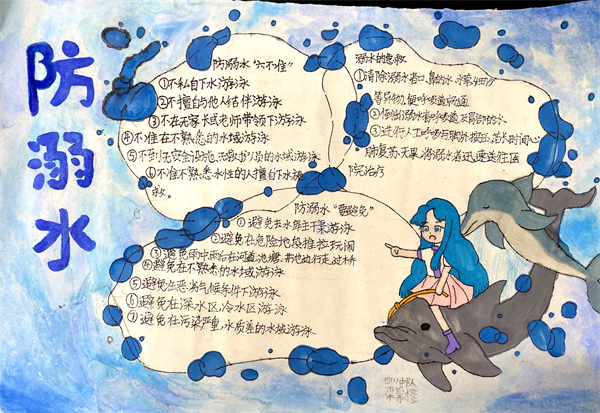 防溺水
防溺水“六不准”
①不私自下水游泳
②不擅自与他人结伴游泳
③不在无家长或老师带领下游泳
④不准在不熟悉的水域游泳
⑤不到无安全设施、无救护人员的水域游泳
⑥不准不熟悉水性的人擅自下水施
救。
溺水的急救
①清除溺水者口、鼻的水、
等异物,使呼吸道
②
③进行人工呼吸
肺复苏无果,将溺水者迅速送往医
院治疗
防溺水“要避免”
①避免去水库主干渠游泳
②避免在危险地段推拉玩闹
③避免雨中雨后在河道、池塘、
④避免在不熟悉的水域游泳
⑤避免在恶劣气候条件下游泳
⑥避免在深水区,冷水区游泳
⑦避免在污染严重,水质差的水域游泳
中队